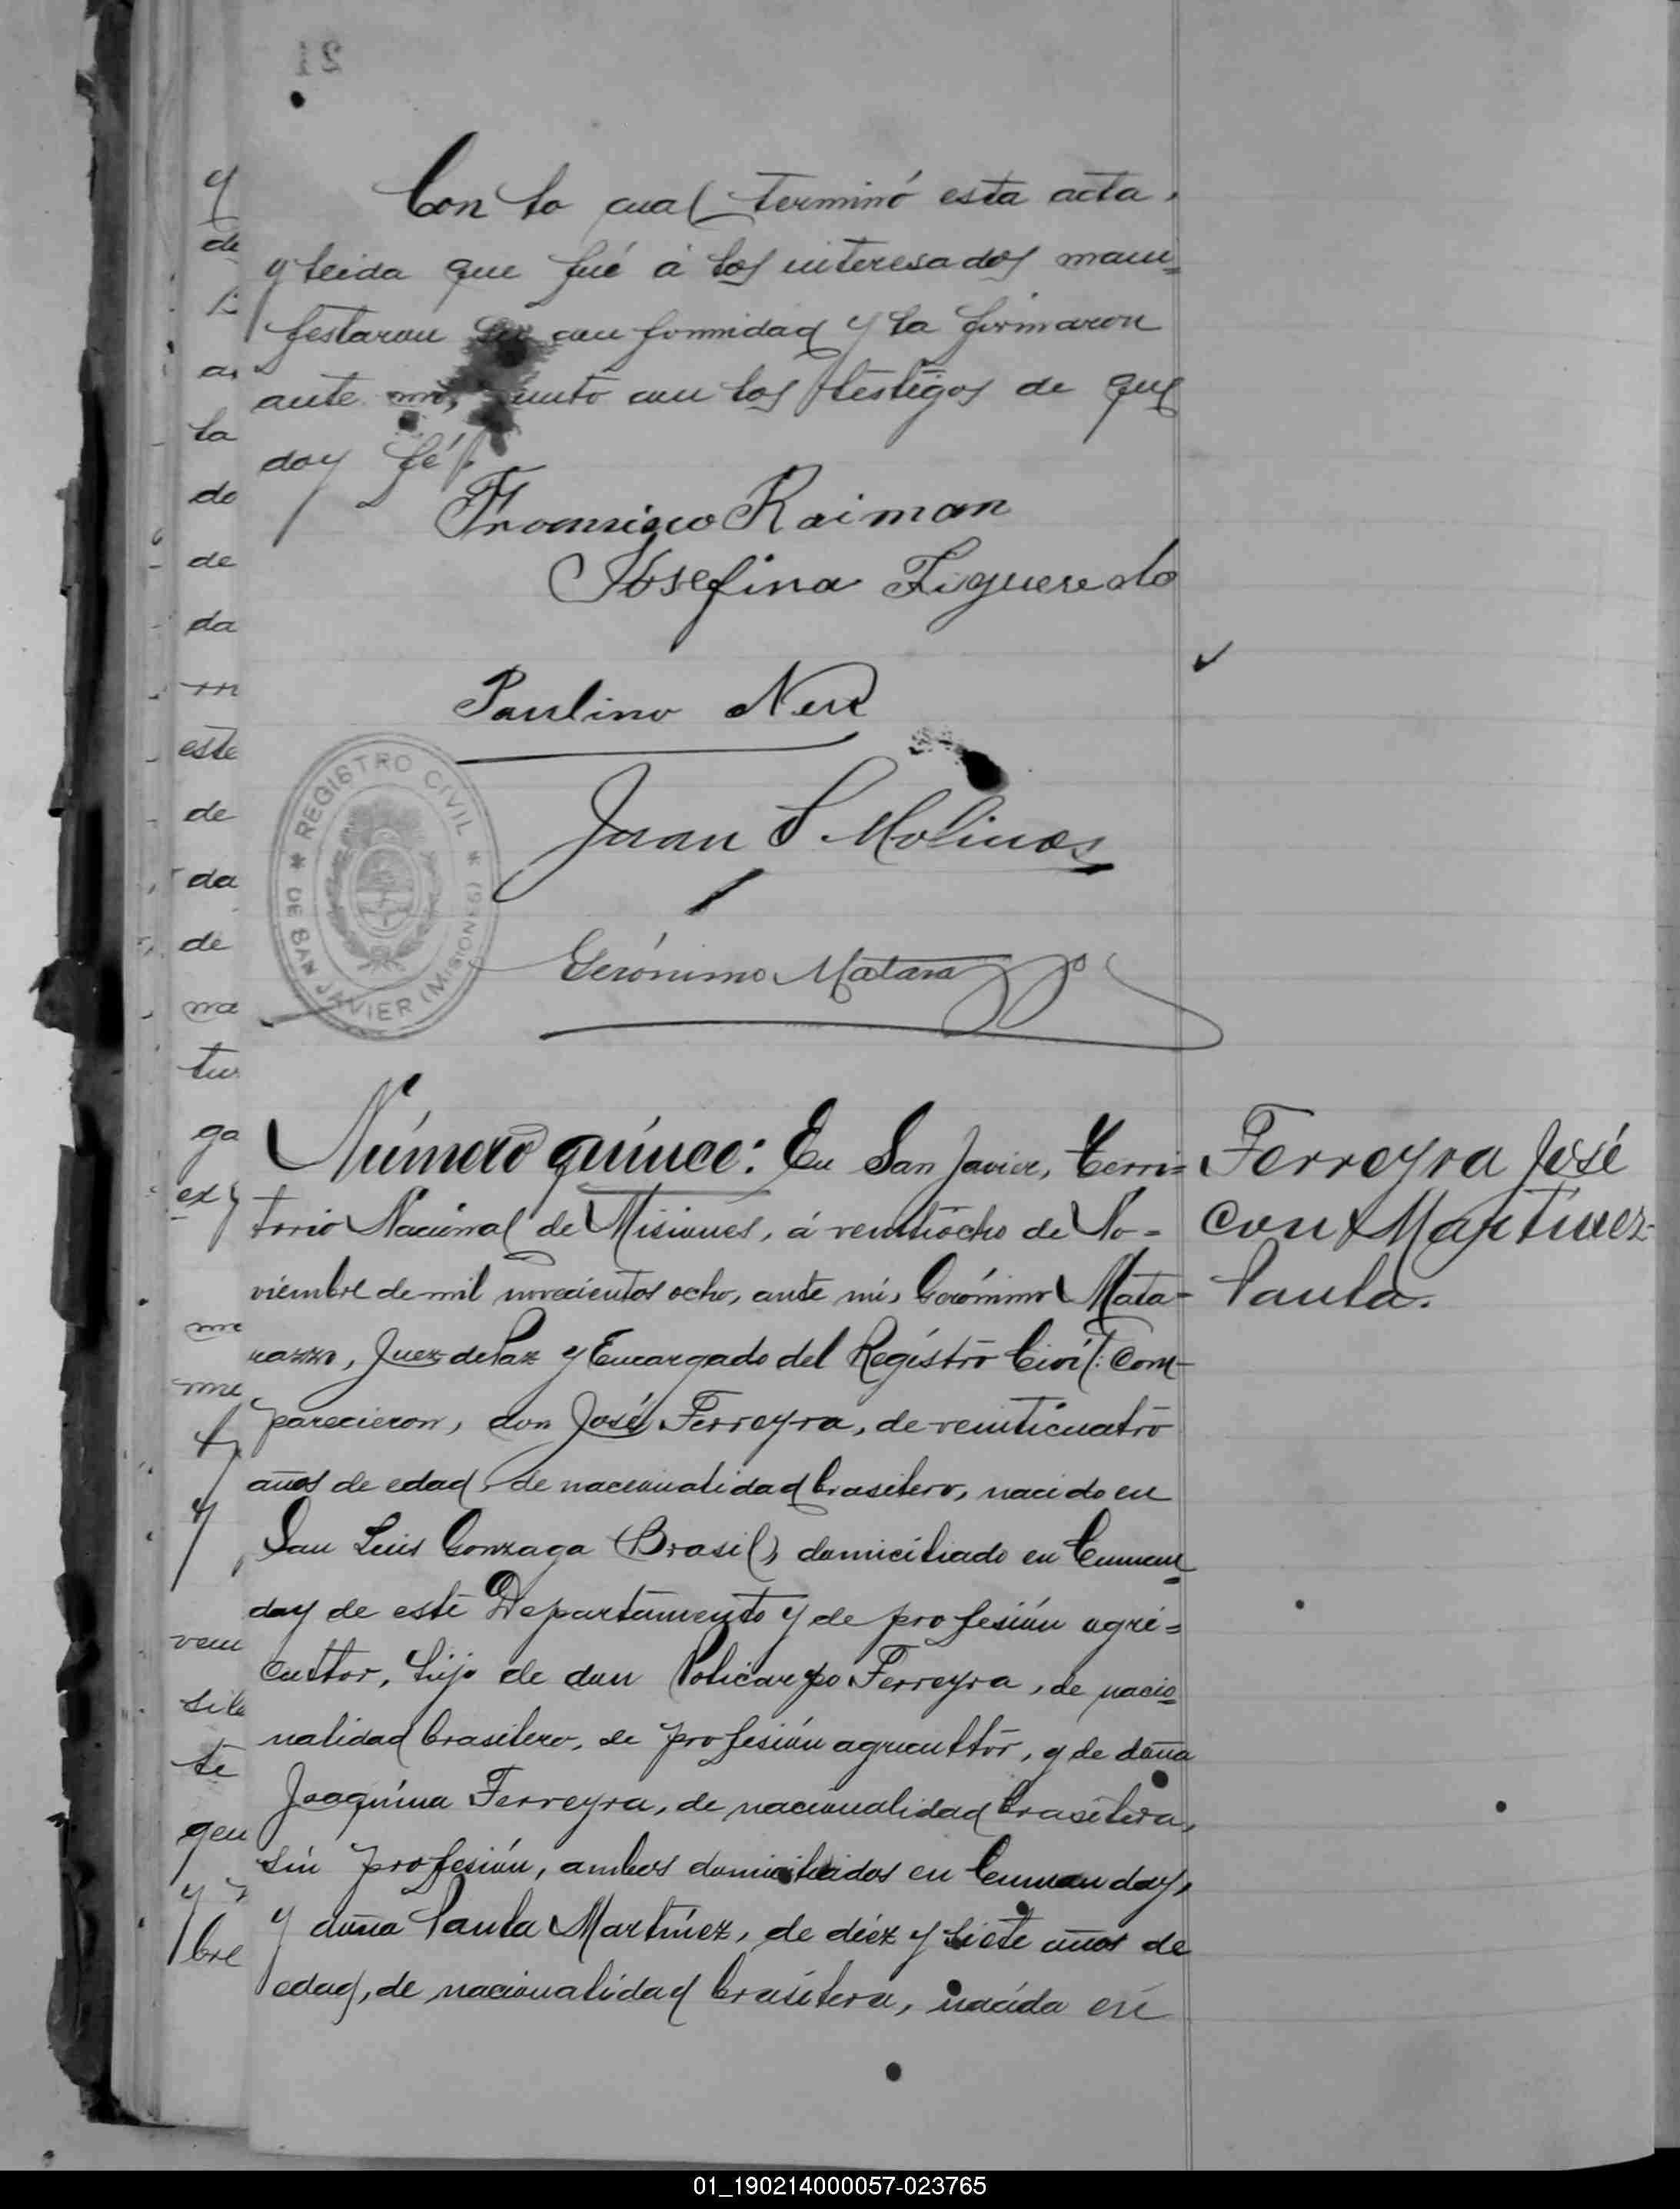 Con lo cual terminó esta acta,
y leida que fué á los interesados mani=
festaron su conformidad y la firmaron
ante mi, junto con los testigos de que
doy fé.
Francisco Raiman
Josefina Figueredo
Paulino
Juan S. Molinas
Gerónimo Matarazzo
* REGISTRO CIVIL *
DE SAN JAVIER (MISIONES)
Número quince: En San Javier, Terri=
torio Nacional de Misiones, á veintiocho de No=
viembre de mil novecientos ocho, ante mi, Gerónimo Mata-
razzo, Juez de Paz y Encargado del Registro Civil: Com-
parecieron, don José Ferreyra, de veinticuatro
años de edad, de nacionalidad brasilero, nacido en
San Luis Gonzaga (Brasil), domiciliado en
day de este Departamento y de profesión agri=
cultor, hijo de don Policarpo Ferreyra, de nacio=
nalidad brasilero, de profesión agricultor, y de doña
Joaquina Ferreyra, de nacionalidad brasilera,
sin profesión, ambos domiciliados en
y doña Paula Martínez, de diéz y siete años de
edad, de nacionalidad brasilera, nacida en
Ferreyra José
con Martinez
Paula.
y
de
la
do
de
da
m
este
de
da
de
ma
tu
ga
ex
me
me
y
vein
sile
te
gen
y
bre
01_190214000057-023765